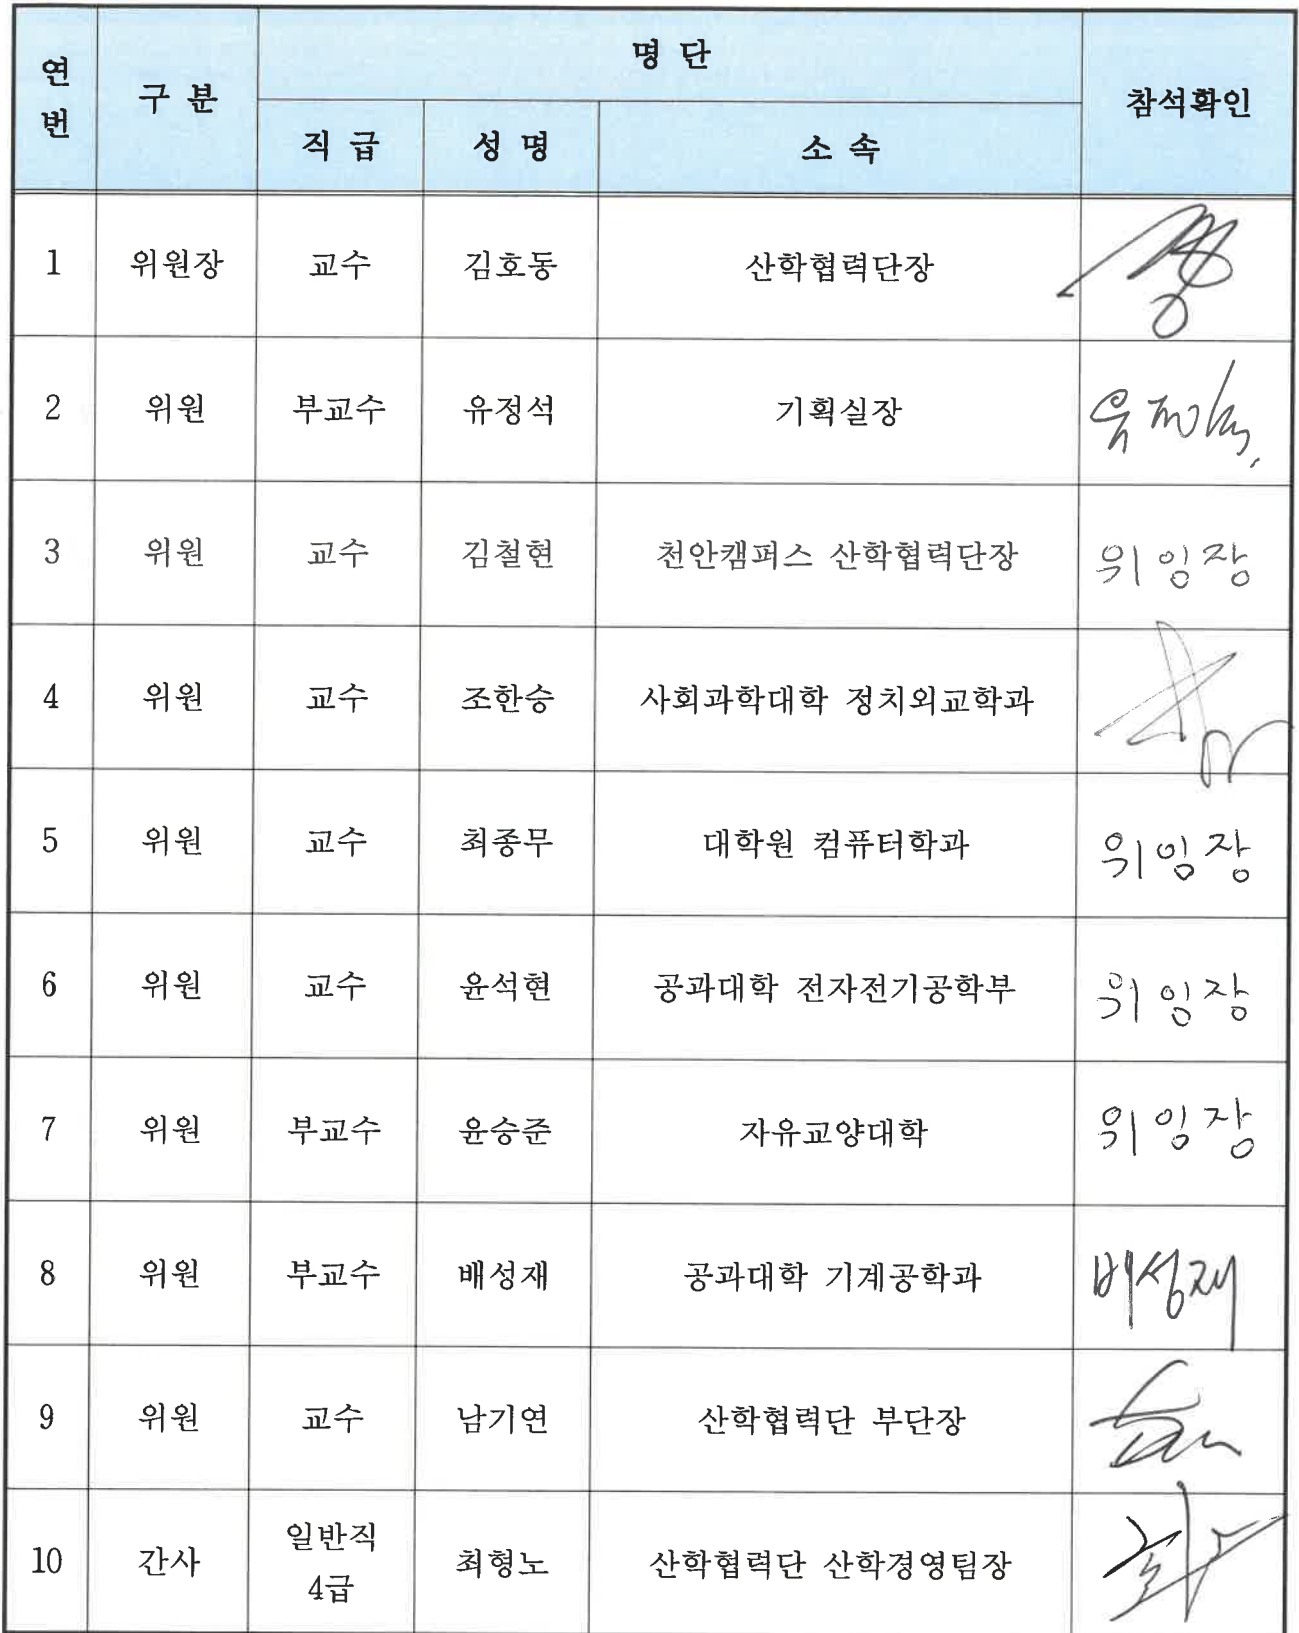 연번 구 분 명 단 참석확인
직 급 성 명 소 속
1 위원장 교수 김호동 산학협력단장
2 위원 부교수 유정석 기획실장 유정석
3 위원 교수 김철현 천안캠퍼스 산학협력단장 위임장
4 위원 교수 조한승 사회과학대학 정치외교학과
5 위원 교수 최종무 대학원 컴퓨터학과 위임장
6 위원 교수 윤석현 공과대학 전자전기공학부 위임장
7 위원 부교수 윤승준 자유교양대학 위임장
8 위원 부교수 배성재 공과대학 기계공학과 배성재
9 위원 교수 남기연 산학협력단 부단장
10 간사 일반직 4급 최형노 산학협력단 산학경영팀장